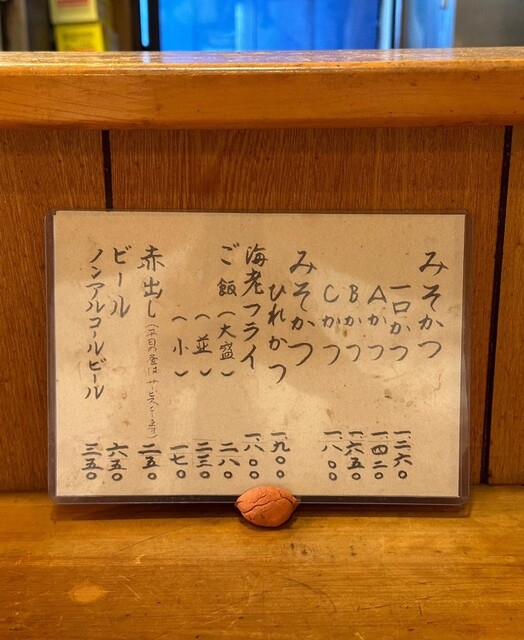 みそかつ
一口かつ 一、二六〇
Aかつ 一、四二〇
Bかつ 一、六五〇
Cかつ 一、八〇〇
みそかつ
ひれかつ 一、九〇〇
海老フライ 一、八〇〇
ご飯（大盛） 二八〇
（並） 二三〇
（小） 一七〇
赤出し（平日の昼はサービスします） 二五〇
ビール 六五〇
ノンアルコールビール 三五〇